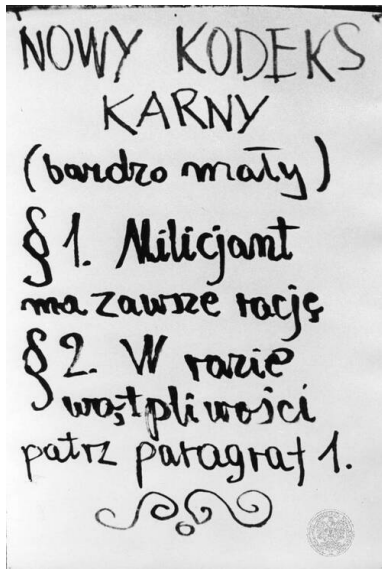 NOWY KODEKS
KARNY
(bardzo mały)
§ 1. Milicjant
ma zawsze rację
§ 2. W razie
wątpliwości
patrz paragraf 1.